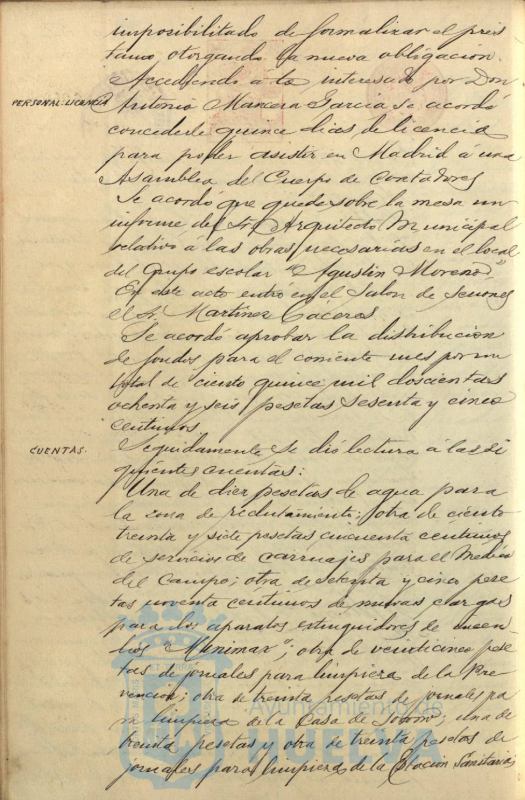 imposibilitado de formalizar el prés
tamo otorgando la nueva obligación.
Accediendo á lo interesado por Don
PERSONAL-LICENCIA
Antonio Mancera Garcia se acordó
concederle quince dias de licencia
para poder asistir en Madrid á una
Asamblea del Cuerpo de Contadores
Se acordó que quede sobre la mesa un
informe del Sr. Arquitecto Municipal
relativo á las obras necesarias en el local
del Grupo escolar "Agustin Moreno"
En este acto entró en el Salon de sesiones
el Sr. Martinez Cáceres.
Se acordó aprobar la distribucion
de fondos para el corriente mes por un
total de ciento quince mil doscientas
ochenta y seis pesetas sesenta y cinco
centimos.
CUENTAS.
Seguidamente se dió lectura á las si
guientes cuentas:
Una de diez pesetas de agua para
la zona de reclutamiento; otra de ciento
treinta y siete pesetas cincuenta centimos
de servicios de carruajes para el Medico
del Campo; otra de setenta y cinco pese
tas noventa centimos de nuevas cargas
para los aparatos extinguidores de incen
dios "Minimax"; otra de veinticinco pese
tas de jornales para limpieza de la Pre
vencion; otra de treinta pesetas de jornales pa
ra limpieza de la Casa de Socorro; una de
treinta pesetas y otra de treinta pesetas de
jornales para limpieza de la Estación Sanitaria;
Ayuntamiento de
HUELVA